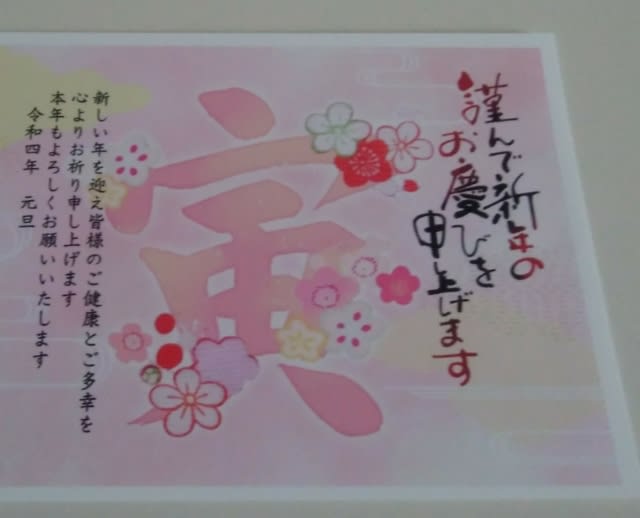 謹んで新年の
お慶びを
申し上げます
寅
新しい年を迎え皆様のご健康とご多幸を
心よりお祈り申し上げます
本年もよろしくお願いいたします
令和四年 元旦